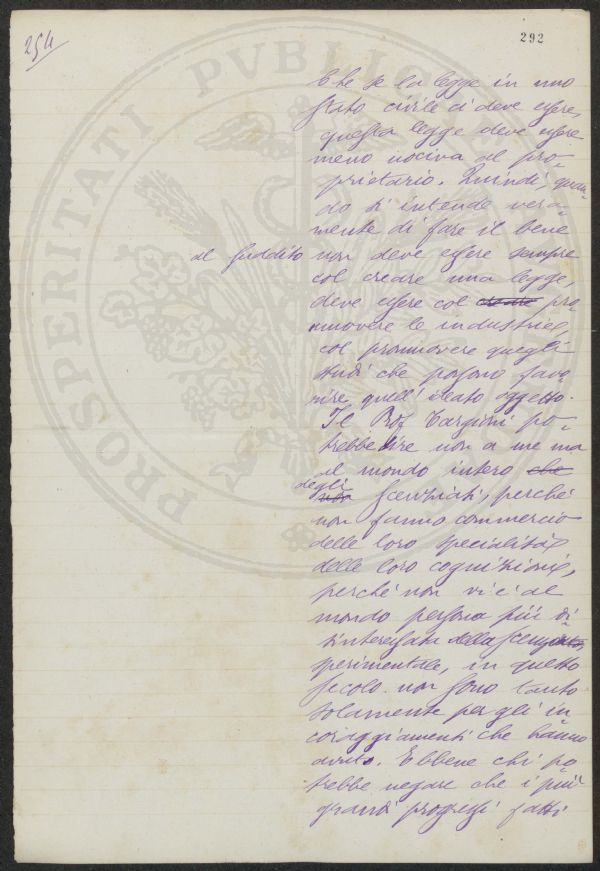 254
292
Che se la legge in uno
stato civile ci deve essere,
questa legge deve essere
meno nociva al pro-
prietario. Quindi, quan-
do s'intende vera-
mente di fare il bene
al suddito non deve essere sempre
col creare una legge,
deve essere col creare pro-
muovere le industrie,
col promuovere quegli
studi che possono favo-
rire quell'ideato oggetto.
Il Prof. Targioni po-
trebbe dire non a me ma
al mondo intero che
degli non scienziati, perché
non fanno commercio
delle loro specialità,
delle loro cognizioni,
perché non vi è al
mondo persona più di-
sinteressata dello scienziato
sperimentale, in questo
secolo non sono tanto
solamente per gli in-
coraggiamenti che hanno
avuto. Ebbene chi po-
trebbe negare che i più
grandi progressi fatti
PROSPERITATI PVBLICAE